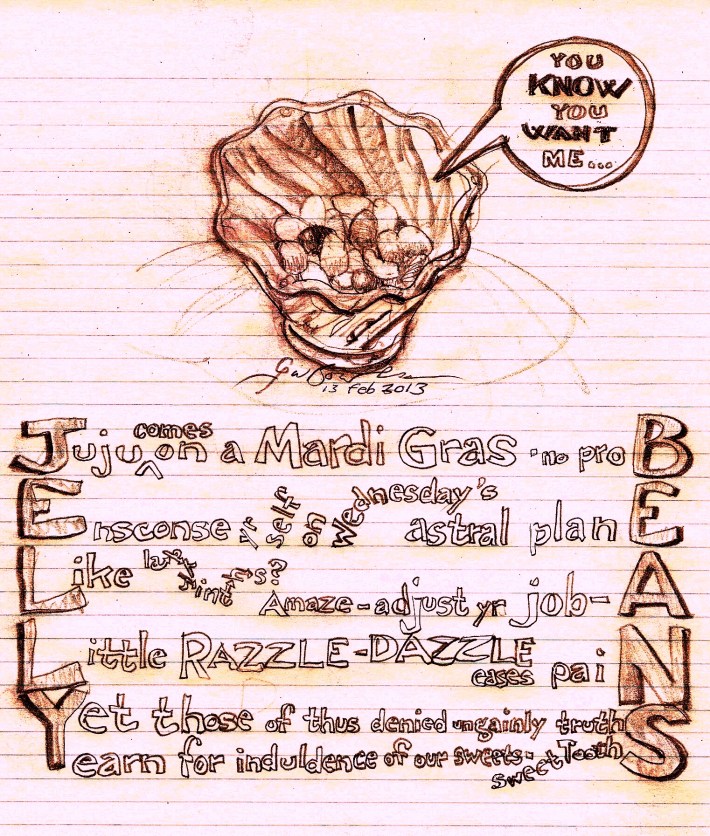 YOU
KNOW
YOU
WANT
ME...
13 Feb 2013
Juju comes on a Mardi Gras - no proB
Ensconse yr self on Wednesday's astral planE
Like
Amaze-adjust yr job-A
Little RAZZLE-DAZZLE eases paiN
Yet those of thus denied ungainly truthS
earn for induldence of our sweets - sweet Tooth